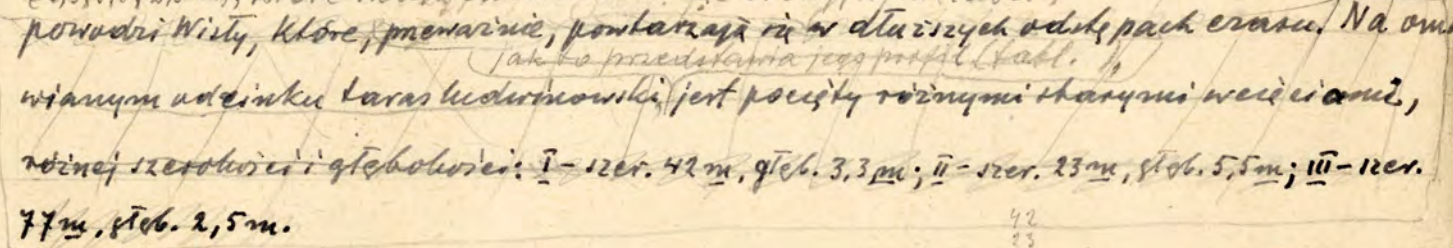 powodzi Wisły, które, przeważnie, powtarzają się w dłuższych odstępach czasu. Na om
jak to przedstawia jego profil (tabl. ),
wianym odcinku taras ludwinowski jest pocięty różnymi starymi wcięciami,
różnej szerokości i głębokości: I - szer. 42 m, głęb. 3,3 m; II - szer. 23 m, głęb. 5,5 m; III - szer.
77 m, głęb. 2,5 m.
42
23